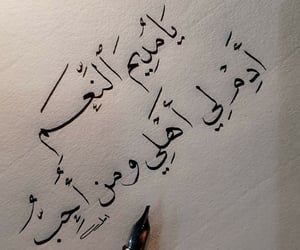 يَا مُدِيمَ ٱلنِّعَمِ
أَدِمْ لِي أَهْلِي وَمَن أُحِبُّ